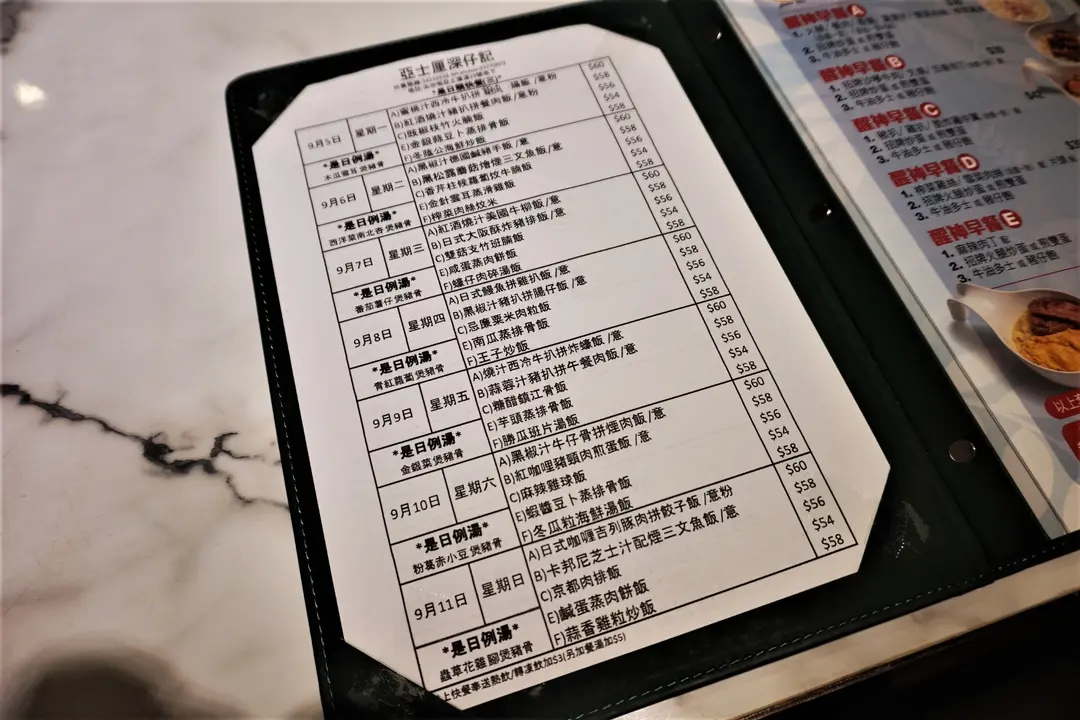 亞士厘深仔記
*是日騰快餐*
9月5日 星期一
A)蜜桃汁西冷牛扒拼 腸飯/意粉 $60
B)紅酒燒汁豬扒拼餐肉飯/意粉 $58
C)豉椒枝竹火腩飯 $56
E)金銀蒜豆卜蒸排骨飯 $54
F)冬蔭公海鮮炒飯 $58
*是日例湯*
木瓜雪耳煲豬骨
9月6日 星期二
A)黑椒汁德國鹹豬手飯/意 $60
B)黑松露蘑菇燴煙三文魚飯/意 $58
C)香芹柱候蘿蔔炆牛腩飯 $56
E)金針雲耳蒸滑雞飯 $54
F)榨菜肉絲炆米 $58
*是日例湯*
西洋菜南北杏煲豬骨
9月7日 星期三
A)紅酒燒汁美國牛柳飯/意 $60
B)日式大阪酥炸豬排飯/意 $58
C)雙菇支竹班腩飯 $56
E)咸蛋蒸肉餅飯 $54
F)蠔仔肉碎湯飯 $58
*是日例湯*
番茄薯仔煲豬骨
9月8日 星期四
A)日式鰻魚拼雞扒飯/意 $60
B)黑椒汁豬扒拼腸仔飯/意 $58
C)忌廉粟米肉粒飯 $56
E)南瓜蒸排骨飯 $54
F)王子炒飯 $58
*是日例湯*
青紅蘿蔔煲豬骨
9月9日 星期五
A)燒汁西冷牛扒拼炸蠔飯/意 $60
B)蒜蓉汁豬扒拼午餐肉飯/意 $58
C)糖醋鎮江骨飯 $56
E)芋頭蒸排骨飯 $54
F)勝瓜班片湯飯 $58
*是日例湯*
金銀菜煲豬骨
9月10日 星期六
A)黑椒汁牛仔骨拼煙肉飯/意 $60
B)紅咖哩豬頸肉煎蛋飯/意 $58
C)麻辣雞球飯 $56
E)蝦醬豆卜蒸排骨飯 $54
F)冬瓜粒海鮮湯飯 $58
*是日例湯*
粉葛赤小豆煲豬骨
9月11日 星期日
A)日式咖喱吉列豚肉拼餃子飯/意粉 $60
B)卡邦尼芝士汁配煙三文魚飯/意 $58
C)京都肉排飯 $56
E)鹹蛋蒸肉餅飯 $54
F)蒜香雞粒炒飯 $58
*是日例湯*
蟲草花雞腳煲豬骨
上快餐奉送熱飲/轉凍飲加$3(另加餐湯加$5)
醒神早餐A
2. 招牌炒蛋 或 煎雙蛋
3. 牛油多士 或 豬仔飽
醒神早餐B
2. 招牌炒蛋 或 煎雙蛋
3. 牛油多士 或 豬仔飽
醒神早餐C
2. 招牌炒蛋 或 煎雙蛋
3. 牛油多士 或 豬仔飽
醒神早餐D
2. 招牌火腿炒蛋 或 煎雙蛋
3. 牛油多士 或 豬仔飽
醒神早餐E
1. 麻辣肉丁
2. 招牌火腿炒蛋 或 煎雙蛋
3. 牛油多士 或 豬仔飽